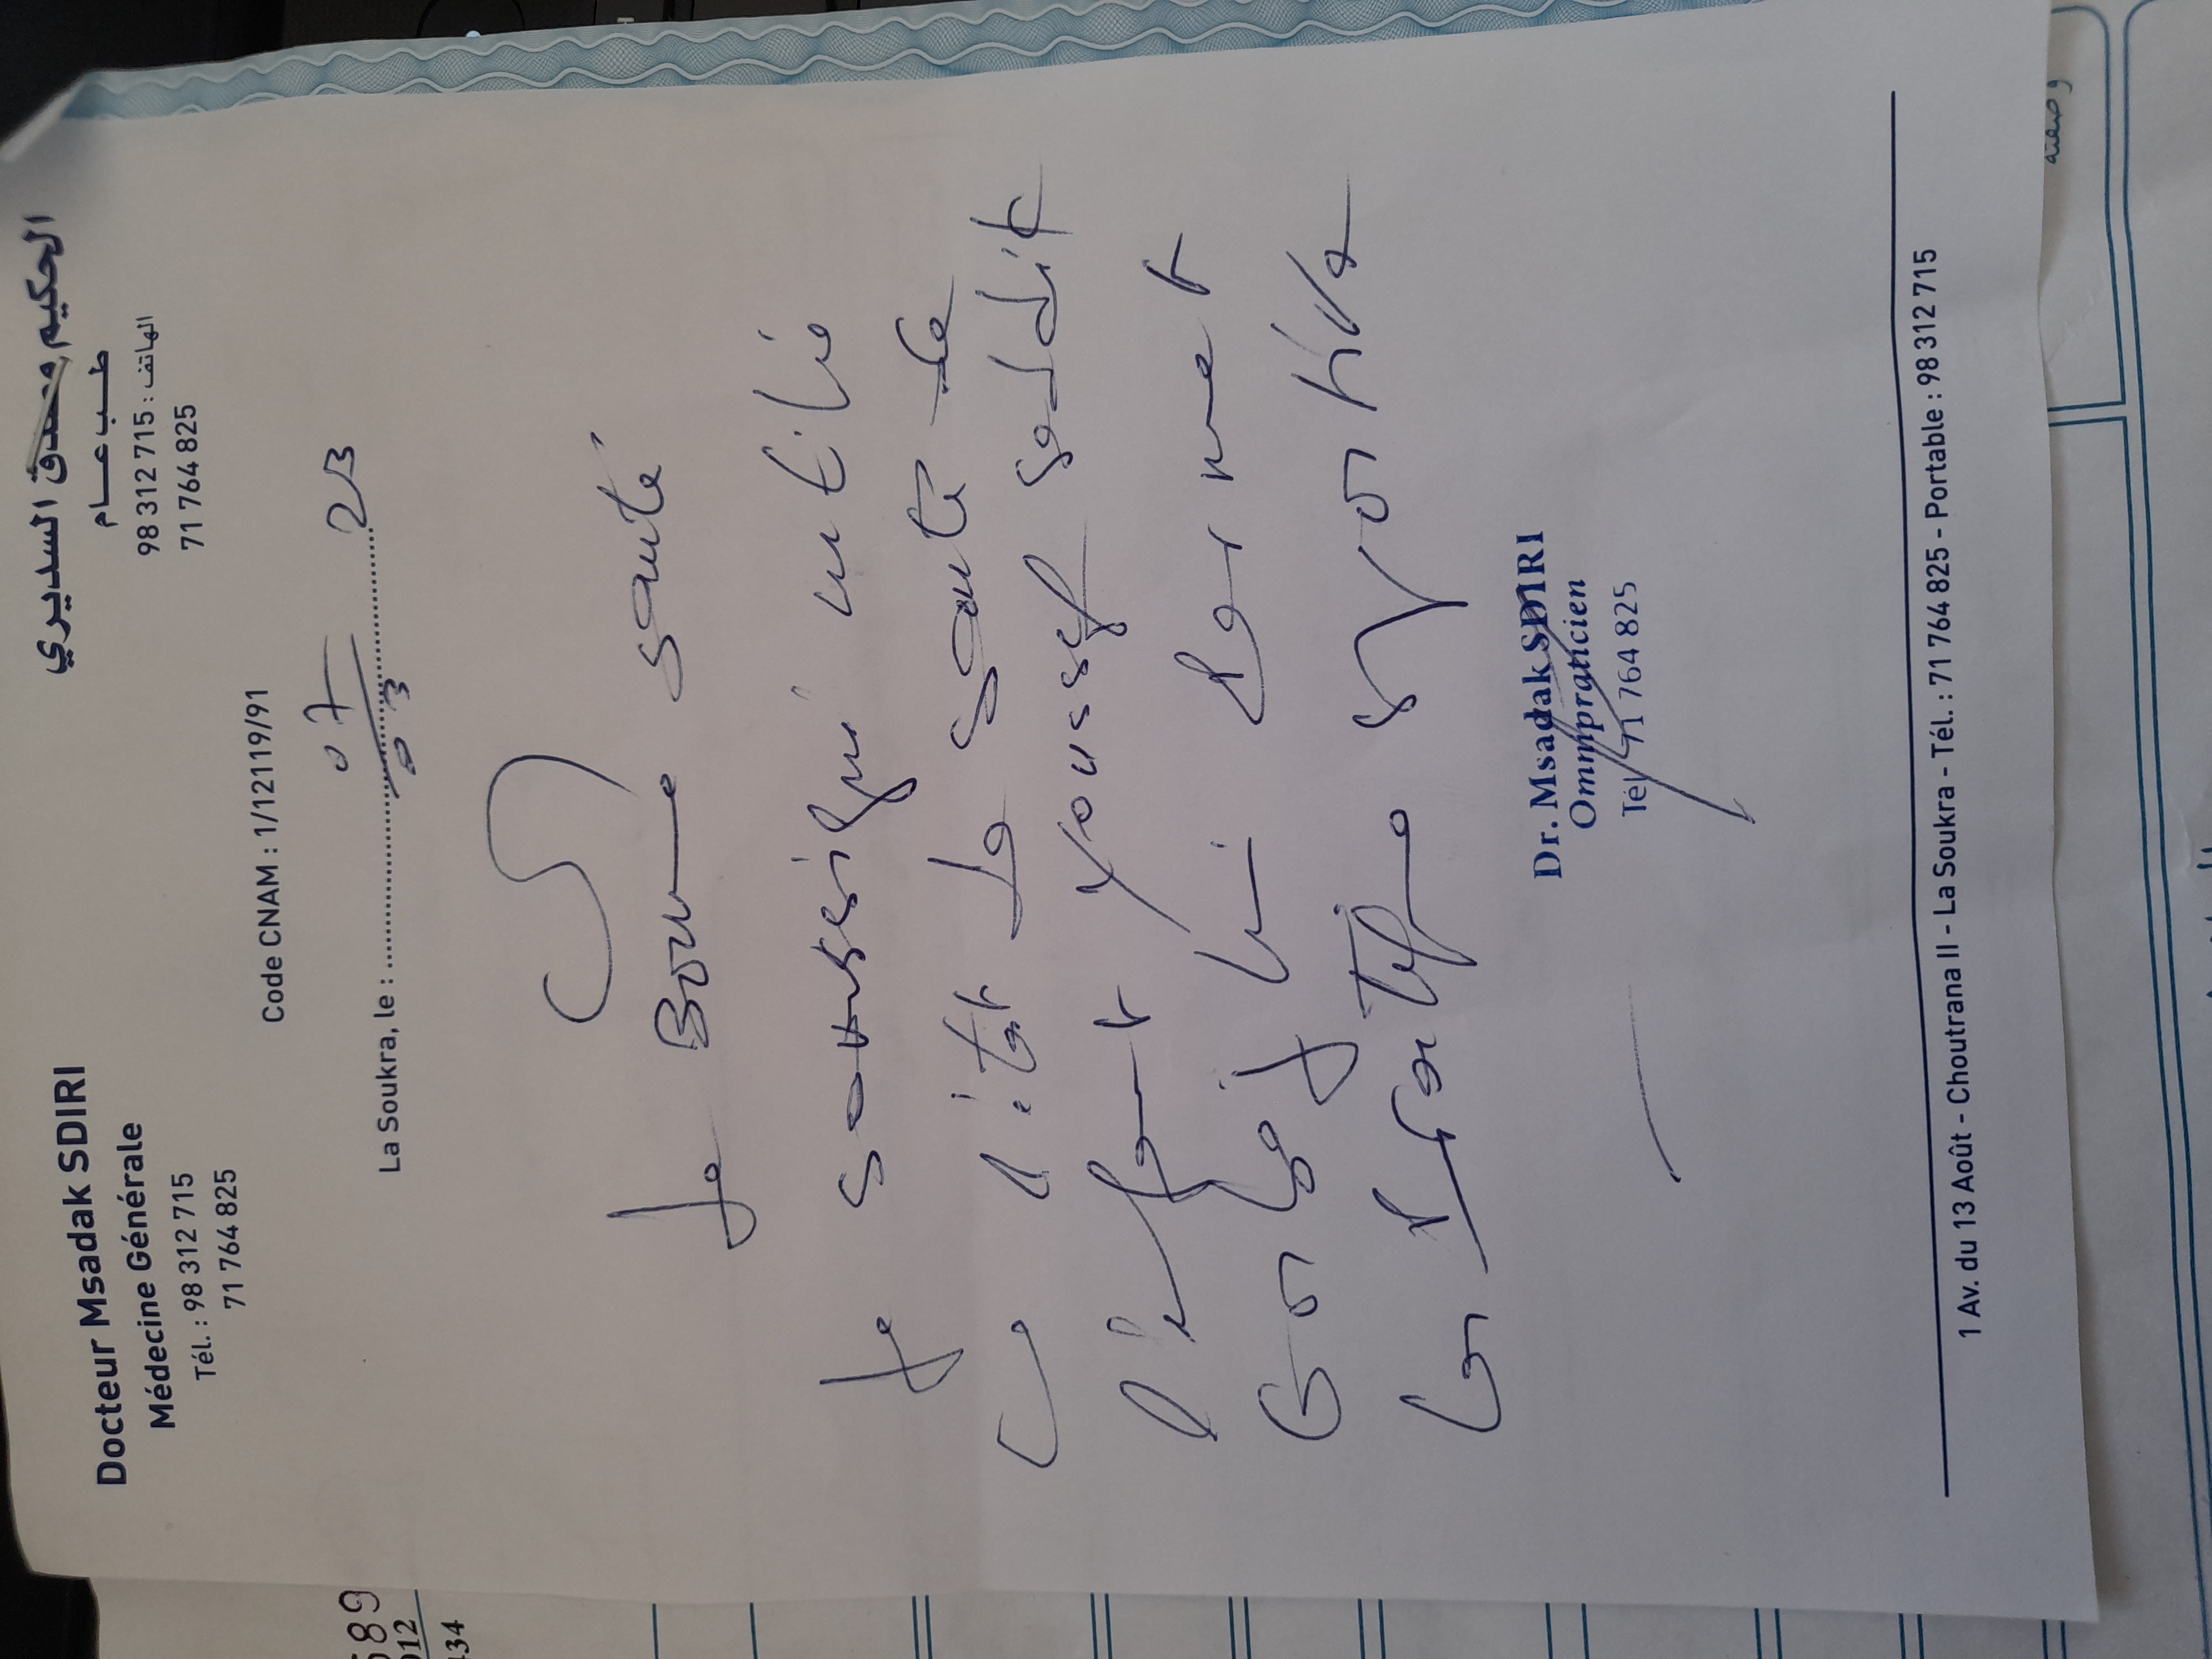 Docteur Msadak SDIRI
Médecine Générale
Tél. : 98 312 715
71 764 825
الحكيم مصدق السديري
طب عام
الهاتف : 98 312 715
71 764 825
Code CNAM : 1/12119/91
La Soukra, le : 07 03 23
de Bonne santé
Je soussigné certifie
que l'état de santé de
l'enfant Youssef
lui permet
la pratique
Dr. Msadak SDIRI
Omnipraticien
Tél 71 764 825
1 Av. du 13 Août - Choutrana II - La Soukra - Tél. : 71 764 825 - Portable : 98 312 715
689
012
134